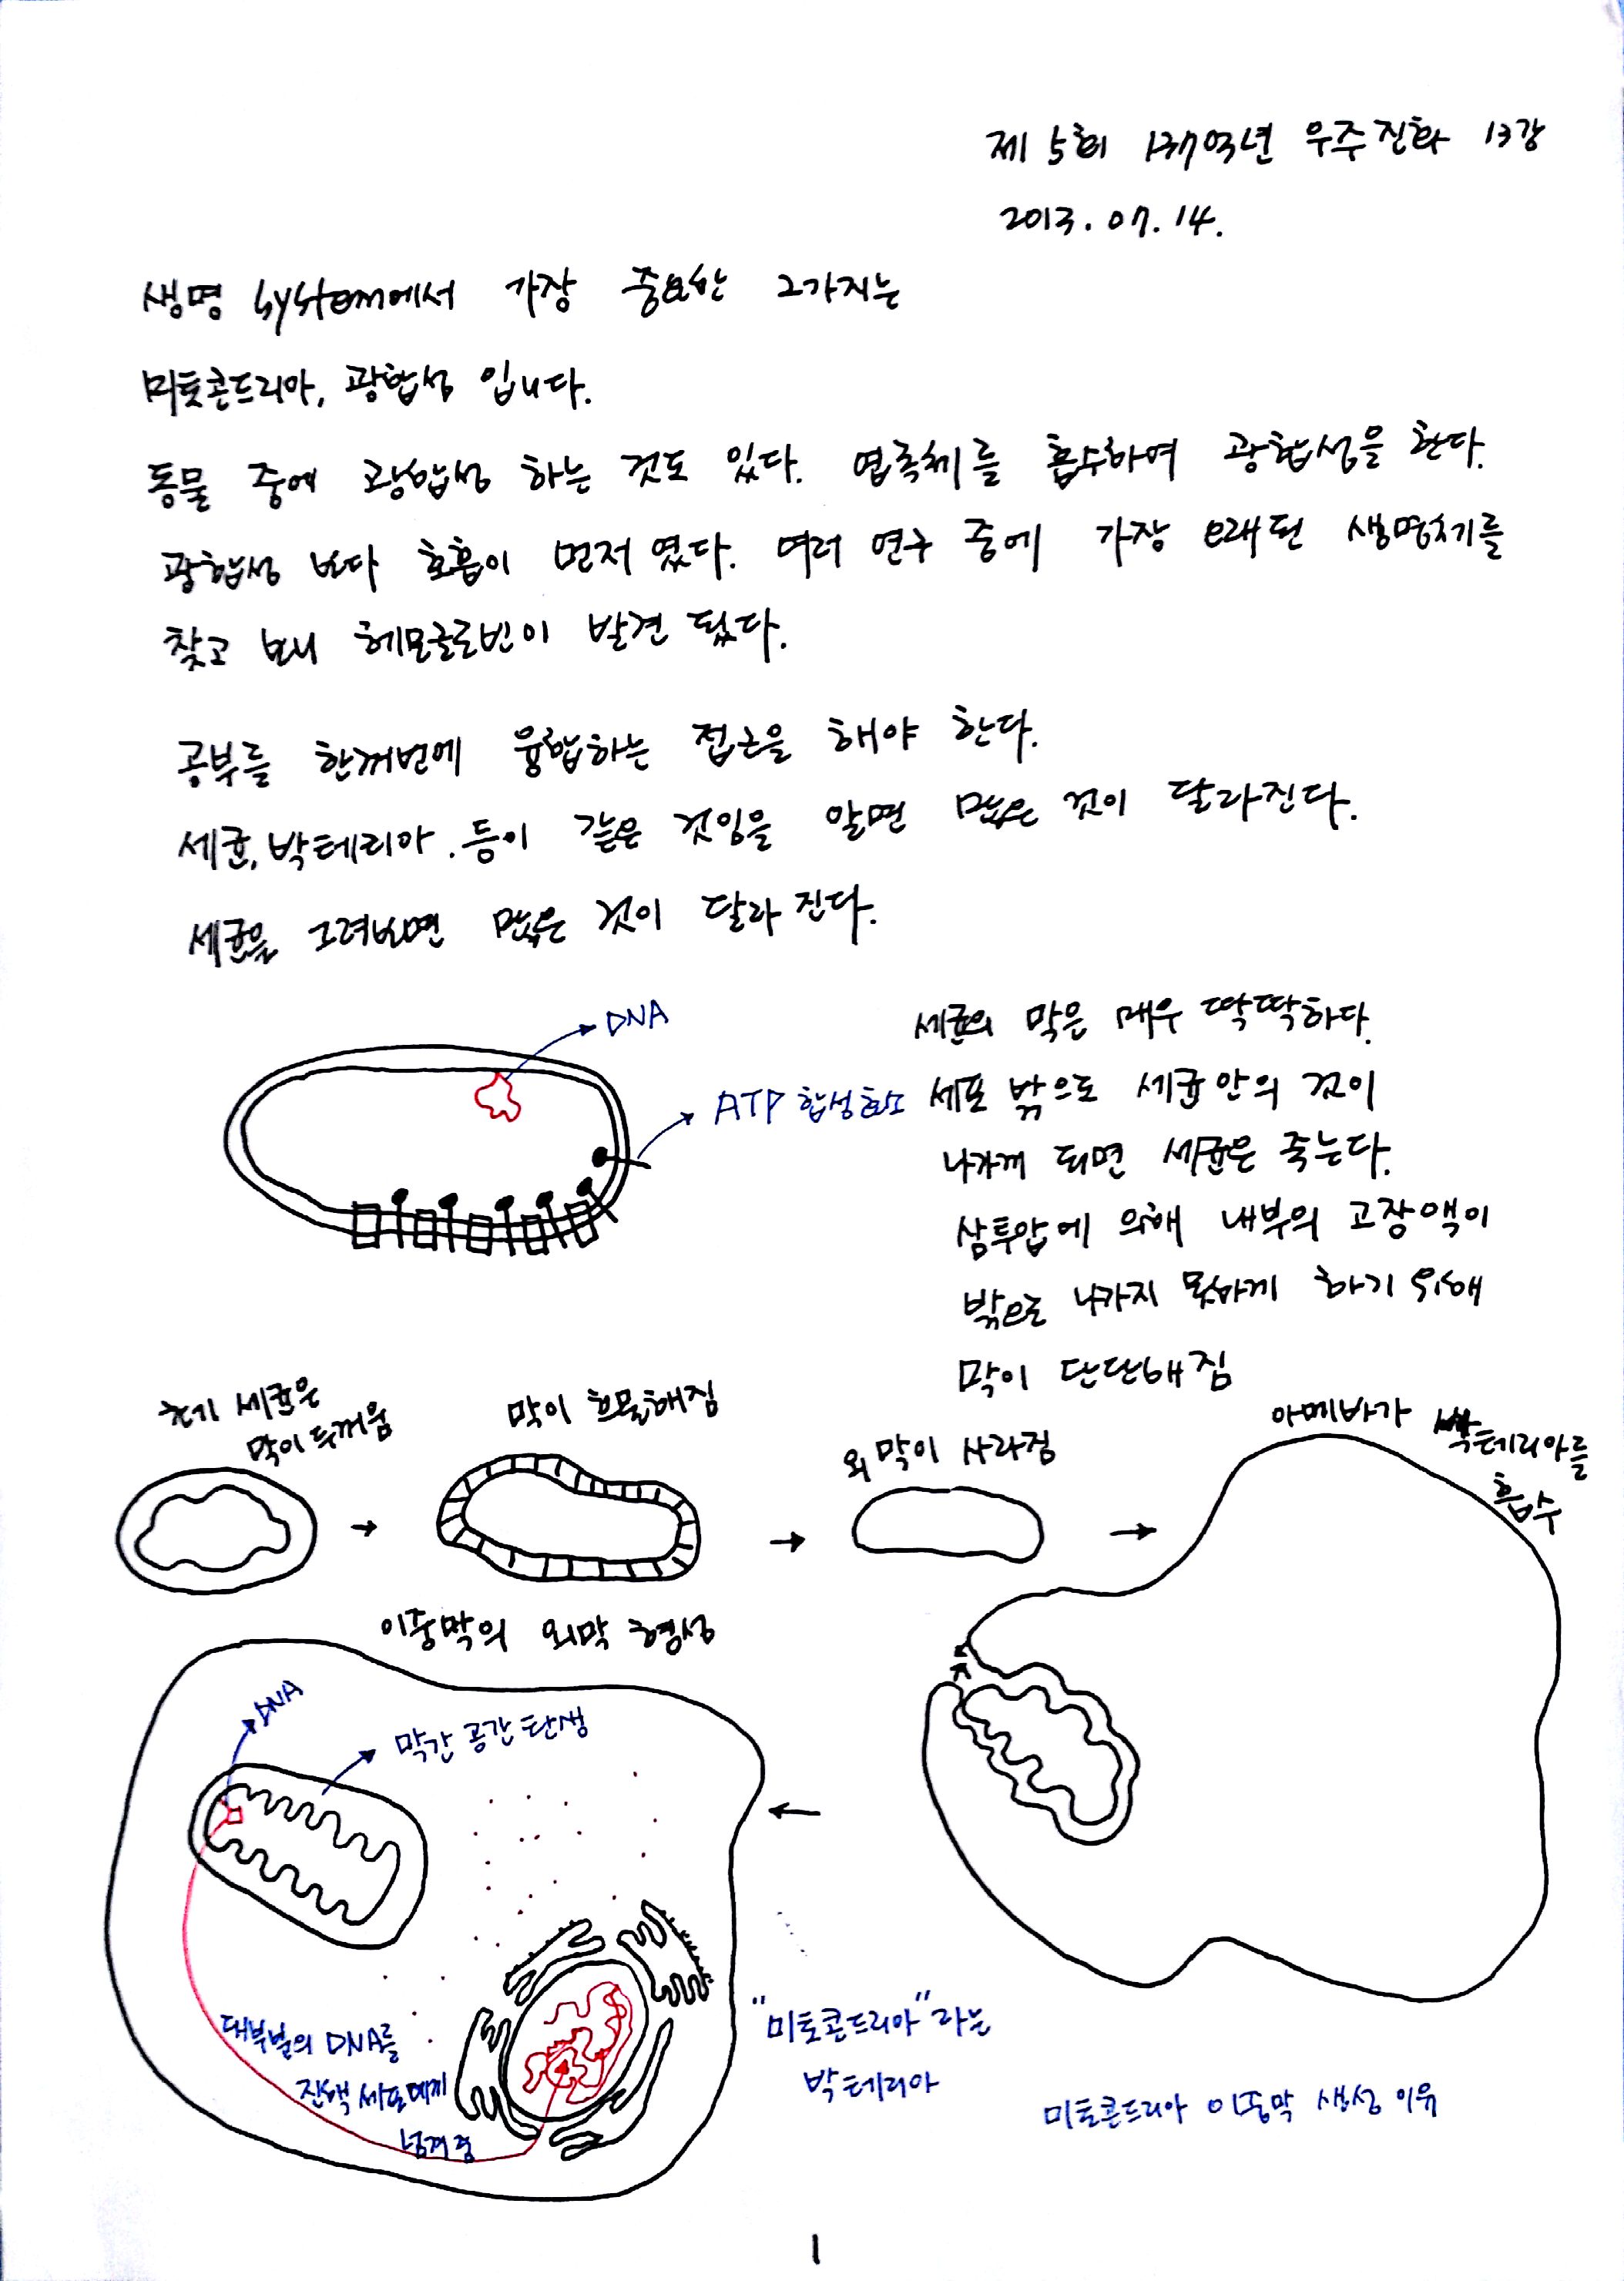 제 5회 137억년 우주진화 13강
2013. 07. 14.
생명 system에서 가장 중요한 2가지는
미토콘드리아, 광합성 입니다.
동물 중에 광합성 하는 것도 있다. 엽록체를 흡수하여 광합성을 한다.
광합성 보다 호흡이 먼저 였다. 여러 연구 중에 가장 오래된 생명체를
찾고 보니 헤모글로빈이 발견 됐다.
공부를 한꺼번에 융합하는 접근을 해야 한다.
세균, 박테리아. 등이 같은 것임을 알면 많은 것이 달라진다.
세균을 그려보면 많은 것이 달라 진다.
DNA
ATP 합성효소
세균의 막은 매우 딱딱하다.
세포 밖으로 세균안의 것이
나가게 되면 세균은 죽는다.
삼투압에 의해 내부의 고장액이
밖으로 나가지 못하게 하기 위해
막이 단단해짐
초기 세균은
막이 두꺼움
막이 흐물해짐
이중막의 외막 형성
외막이 사라짐
아메바가 박테리아를
흡수
DNA
막간 공간 탄생
대부분의 DNA를
진핵 세포에게
넘겨줌
"미토콘드리아"라는
박테리아
미토콘드리아 이중막 생성 이유
1